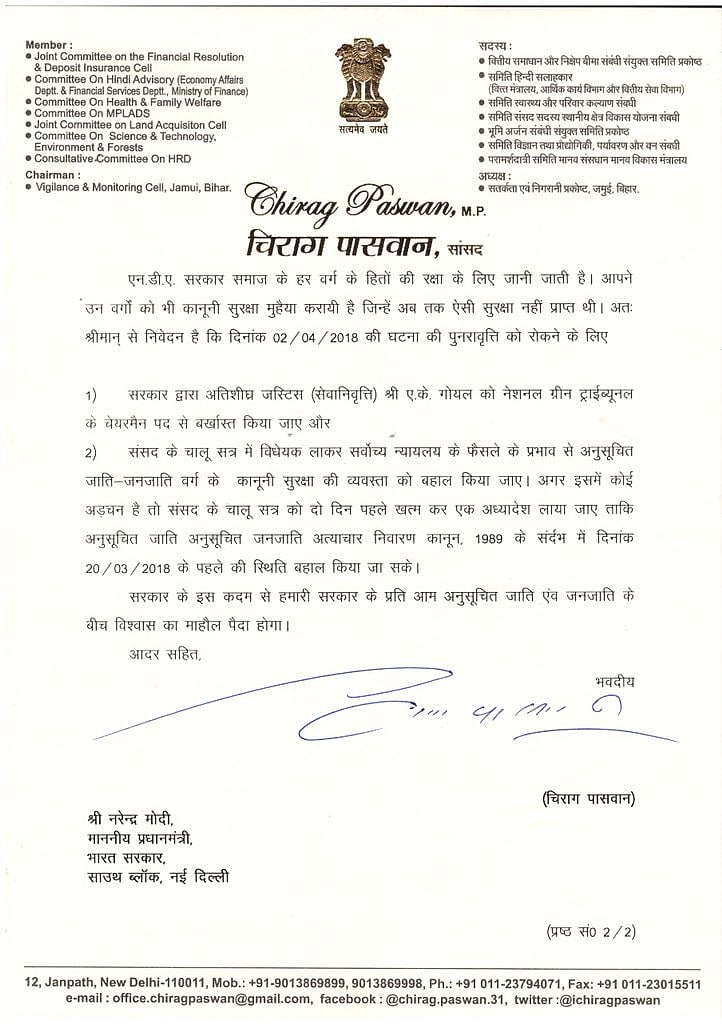 Member :
• Joint Committee on the Financial Resolution
& Deposit Insurance Cell
• Committee On Hindi Advisory (Economy Affairs
Deptt. & Financial Services Deptt., Ministry of Finance)
• Committee On Health & Family Welfare
• Committee On MPLADS
• Joint Committee on Land Acquisiton Cell
• Committee On Science & Technology,
Environment & Forests
• Consultative Committee On HRD
Chairman :
• Vigilance & Monitoring Cell, Jamui, Bihar.
सत्यमेव जयते
सदस्य :
• वित्तीय समाधान और निक्षेप बीमा संबंधी संयुक्त समिति प्रकोष्ठ
• समिति हिन्दी सलाहकार
(वित्त मंत्रालय, आर्थिक कार्य विभाग और वित्तीय सेवा विभाग)
• समिति स्वास्थ्य और परिवार कल्याण संबधी
• समिति संसद सदस्य स्थानीय क्षेत्र विकास योजना संबधी
• भूमि अर्जन संबंधी संयुक्त समिति प्रकोष्ठ
• समिति विज्ञान तथा प्रौद्योगिकी, पर्यावरण और वन संबधी
• परामर्शदात्री समिति मानव संसधान मानव विकास मंत्रालय
अध्यक्ष :
• सतर्कता एवं निगरानी प्रकोष्ट, जमुई, बिहार.
Chirag Paswan, M.P.
चिराग पासवान, सांसद
एन.डी.ए. सरकार समाज के हर वर्ग के हितों की रक्षा के लिए जानी जाती है। आपने
उन वर्गों को भी कानूनी सुरक्षा मुहैया करायी है जिन्हें अब तक ऐसी सुरक्षा नहीं प्राप्त थी। अतः
श्रीमान् से निवेदन है कि दिनांक 02/04/2018 की घटना की पुनरावृत्ति को रोकने के लिए
1) सरकार द्वारा अतिशीघ्र जस्टिस (सेवानिवृत्ति) श्री ए.के. गोयल को नेशनल ग्रीन ट्राईब्यूनल
के चेयरमैन पद से बर्खास्त किया जाए और
2) संसद के चालू सत्र में विधेयक लाकर सर्वोच्य न्यायलय के फैसले के प्रभाव से अनुसूचित
जाति–जनजाति वर्ग के कानूनी सुरक्षा की व्यवस्ता को बहाल किया जाए। अगर इसमें कोई
अड़चन है तो संसद के चालू सत्र को दो दिन पहले खत्म कर एक अध्यादेश लाया जाए ताकि
अनुसूचित जाति अनुसूचित जनजाति अत्याचार निवारण कानून, 1989 के संर्दभ में दिनांक
20/03/2018 के पहले की स्थिति बहाल किया जा सके।
सरकार के इस कदम से हमारी सरकार के प्रति आम अनुसूचित जाति एंव जनजाति के
बीच विश्वास का माहौल पैदा होगा।
आदर सहित,
भवदीय
(चिराग पासवान)
श्री नरेन्द्र मोदी,
माननीय प्रधानमंत्री,
भारत सरकार,
साउथ ब्लॉक, नई दिल्ली
(प्रष्ठ सं0 2/2)
12, Janpath, New Delhi-110011, Mob.: +91-9013869899, 9013869998, Ph.: +91 011-23794071, Fax: +91 011-23015511
e-mail : office.chiragpaswan@gmail.com, facebook : @chirag.paswan.31, twitter :@ichiragpaswan